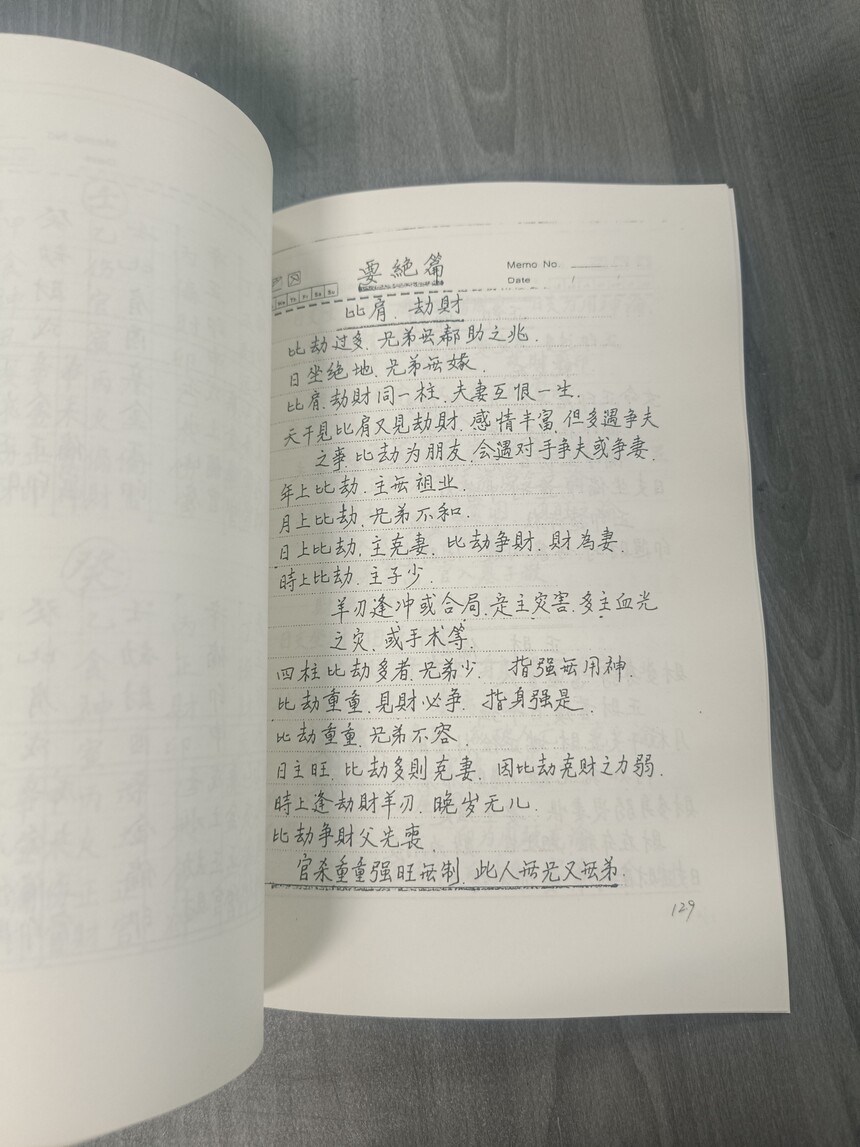 要絶篇
Memo No.
Date
比肩．劫財
比劫过多．兄弟無帮助之兆．
日坐绝地．兄弟無嫁．
比肩．劫財同一柱．夫妻互恨一生．
天干見比肩又見劫財．感情丰富．但多遇争夫
之事．比劫为朋友．会遇对手争夫或争妻．
年上比劫．主無祖业．
月上比劫．兄弟不和．
日上比劫．主克妻．比劫争財．財為妻．
時上比劫．主子少．
羊刃逢冲或合局．定主灾害．多主血光
之灾．或手术等．
四柱比劫多者．兄弟少． 指强無用神．
比劫重重．見財必争． 指身强是．
比劫重重．兄弟不容．
日主旺．比劫多則克妻．因比劫克财之力弱．
時上逢劫財羊刃．晚岁无儿．
比劫争財父先喪．
官杀重重强旺無制．此人無兄又無弟．
129